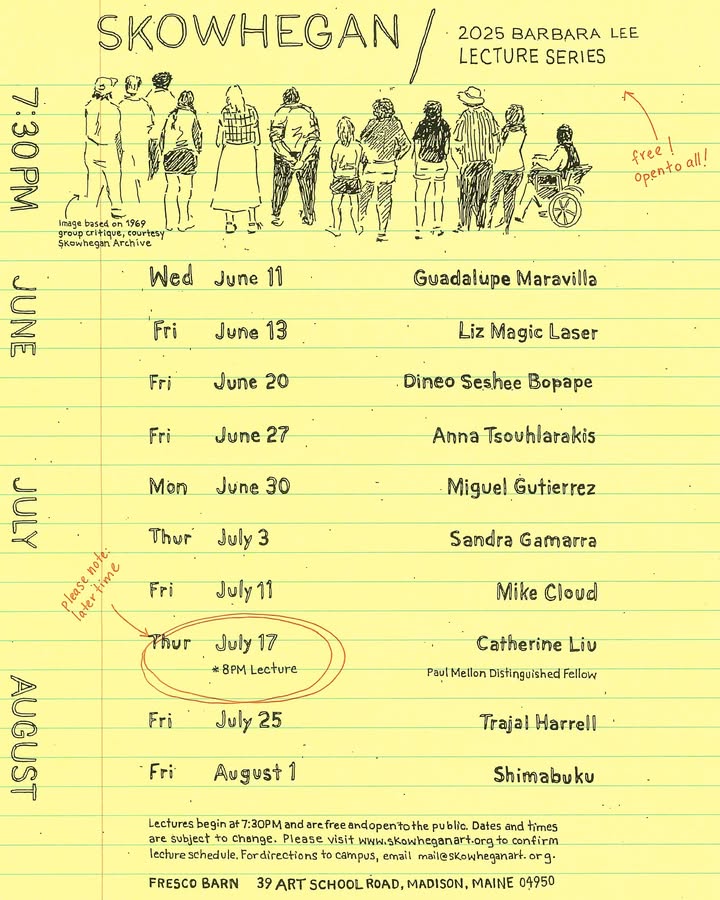 SKOWHEGAN / 2025 BARBARA LEE
LECTURE SERIES
free!
open to all!
7:30PM
Image based on 1969
group critique, courtesy
Skowhegan Archive
JUNE
Wed June 11 Guadalupe Maravilla
Fri June 13 Liz Magic Laser
Fri June 20 Dineo Seshee Bopape
Fri June 27 Anna Tsouhlarakis
Mon June 30 Miguel Gutierrez
JULY
Thur July 3 Sandra Gamarra
Fri July 11 Mike Cloud
Please note:
later time
Thur July 17 Catherine Liu
*8PM Lecture Paul Mellon Distinguished Fellow
Fri July 25 Trajal Harrell
AUGUST
Fri August 1 Shimabuku
Lectures begin at 7:30PM and are free and open to the public. Dates and times
are subject to change. Please visit www.skowheganart.org to confirm
lecture schedule. For directions to campus, email mail@skowheganart.org.
FRESCO BARN 39 ART SCHOOL ROAD, MADISON, MAINE 04950